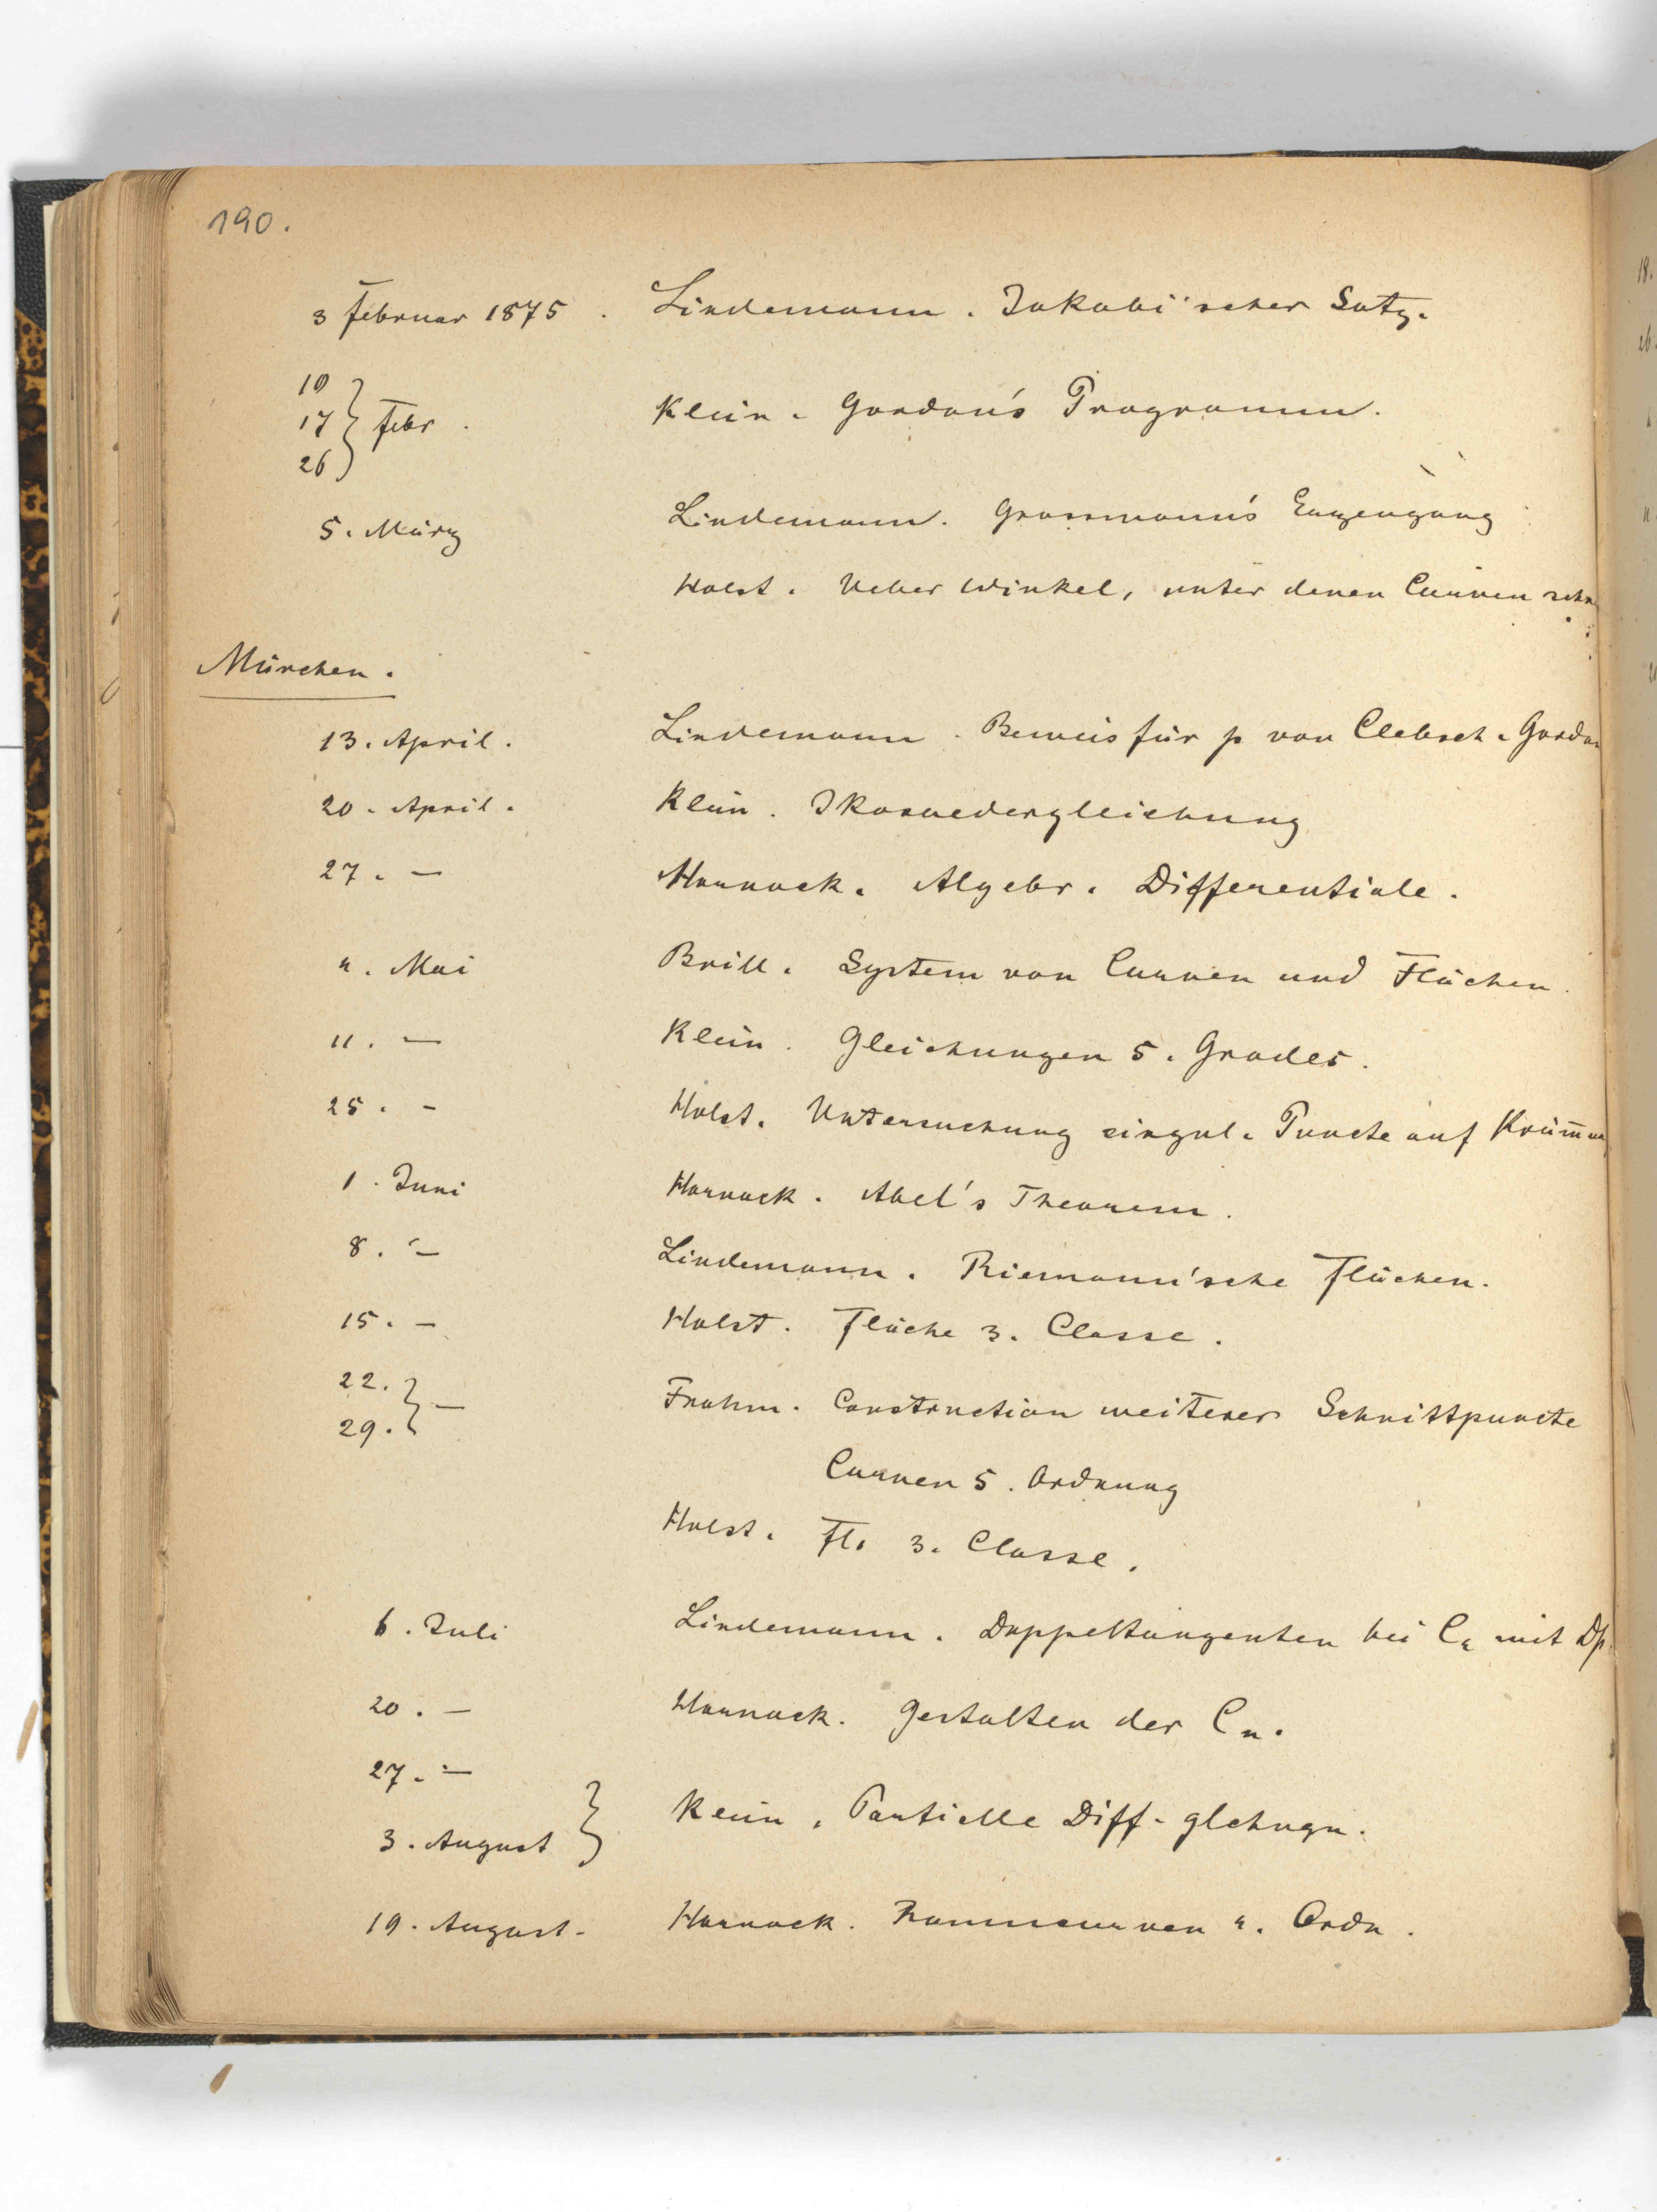 190.
3 Februar 1875. Lindemann. Jakobi'scher Satz.
10
17 } Febr. Klein. Gordan's Programm.
26
5. März Lindemann. Grassmann's Erzeugung
Holst. Ueber Winkel, unter denen Curven schn
München.
13. April. Lindemann. Beweis für p von Clebsch. Gordan
20. April. Klein. Ikosaedergleichung
27. – Harnack. Algebr. Differentiale.
4. Mai Brill. System von Curven und Flächen.
11. – Klein. Gleichungen 5. Grades.
25. – Holst. Untersuchung singul. Puncte auf Krüm̄un
1. Juni Harnack. Abel's Theorem.
8. – Lindemann. Riemann'sche Flächen.
15. – Holst. Fläche 3. Classe.
22.
29. } – Frahm. Construction weiterer Schnittpuncte
Curven 5. Ordnung
Holst. Fl. 3. Classe.
6. Juli Lindemann. Doppeltangenten bei C4 mit Dp.
20. – Harnack. Gestalten der Cn.
27. –
3. August } Klein. Partielle Diff. glchngn.
19. August. Harnack. Raumcurven 4. Ordn.